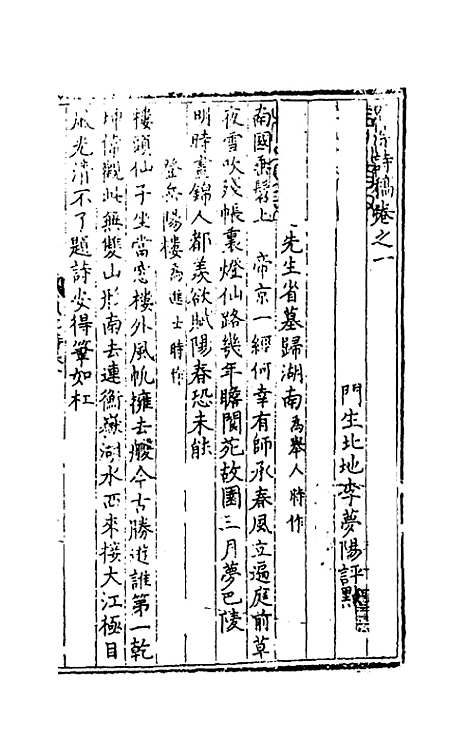 詩稿卷之一
門生北地李夢陽評點
先生省墓歸湖南為舉人時作
南國垂髫上 帝京一經何幸有師承春風立遍庭前草
夜雪吹殘帳裏燈仙路幾年瞻閬苑故園三月夢巴陵
明時晝錦人都羨欲賦陽春恐未能
登岳陽樓為進士時作
樓頭仙子坐當窓樓外風帆擁去艭今古勝遊誰第一乾
坤偉觀此無雙山形南去連衡嶽湖水西來接大江極目
風光清不了題詩安得筆如杠